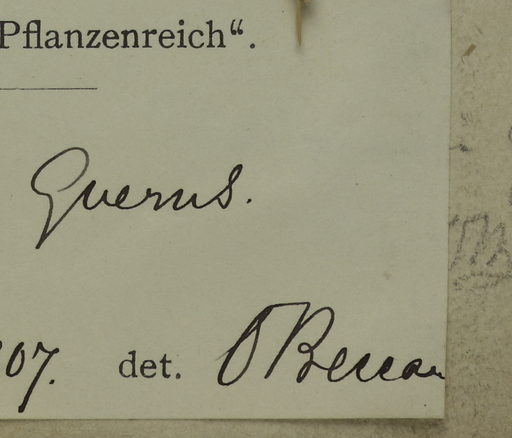 Pflanzenreich“.
Guerns.
907. det. O Beccari